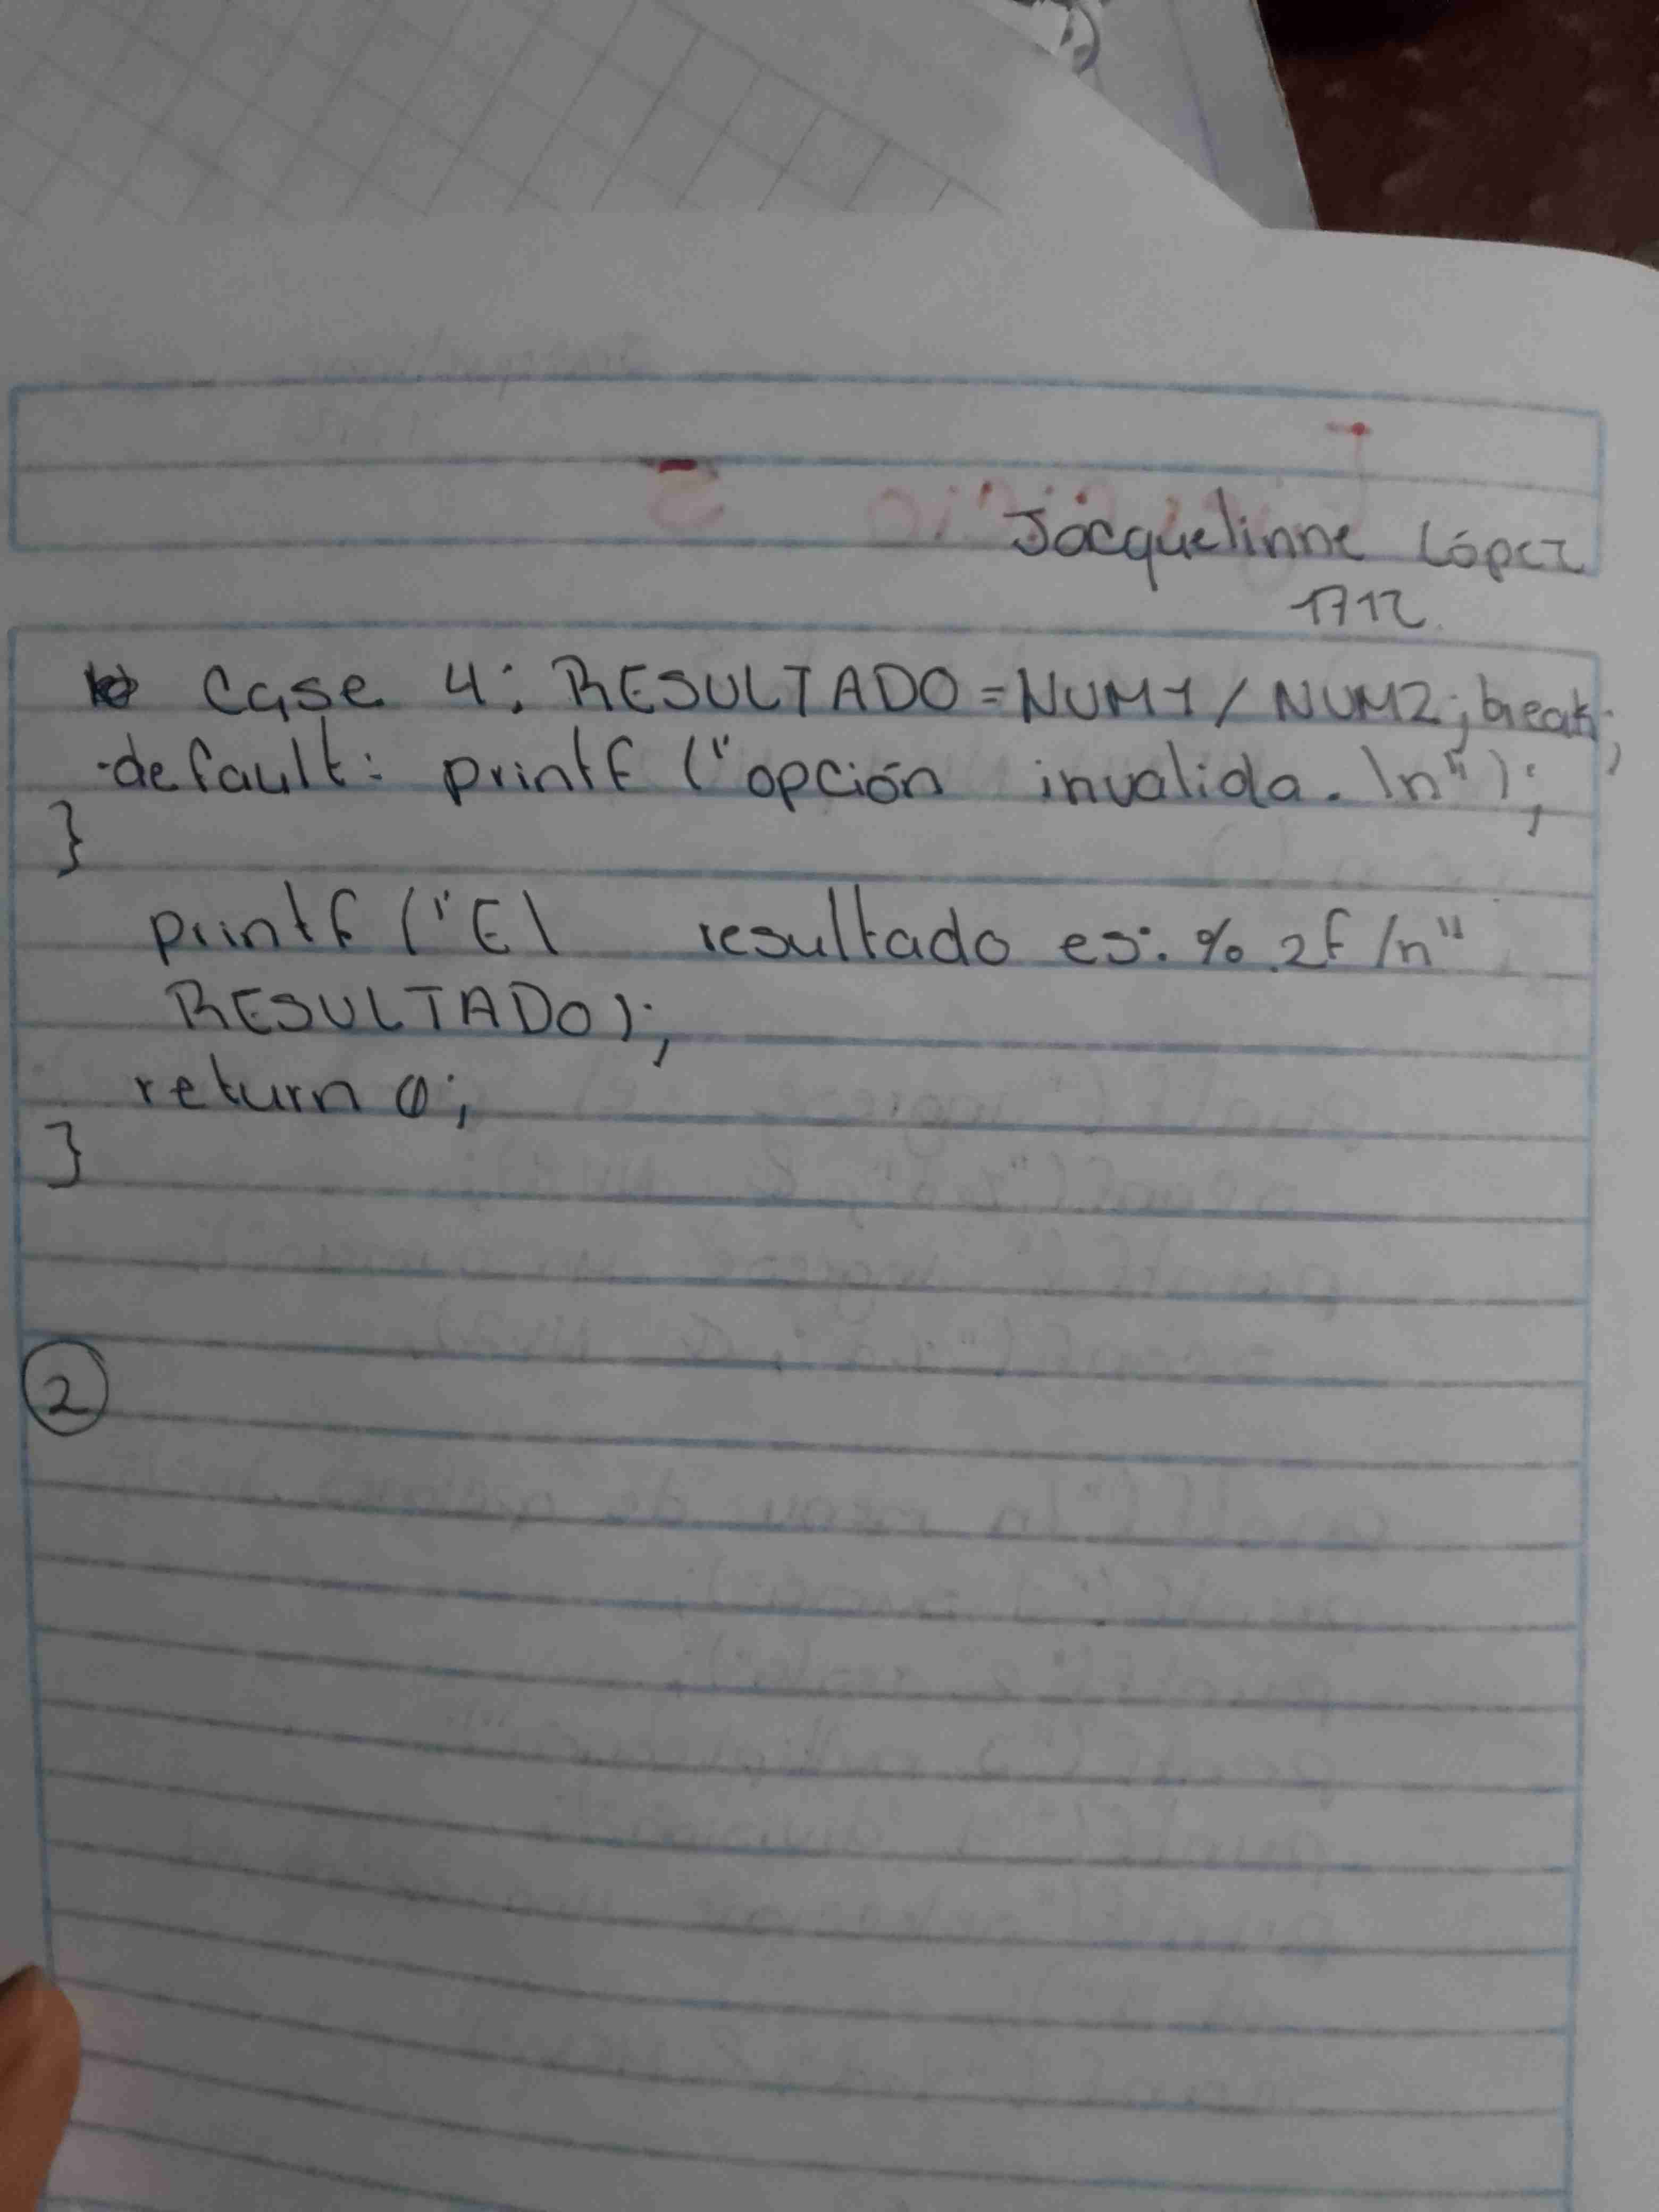 Jacquelinne López
1712
Case 4: RESULTADO = NUM1 / NUM2; break;
default: printf ("opción invalida. \n");
}
printf ("El resultado es: % .2f /n"
RESULTADO);
return 0;
}
2